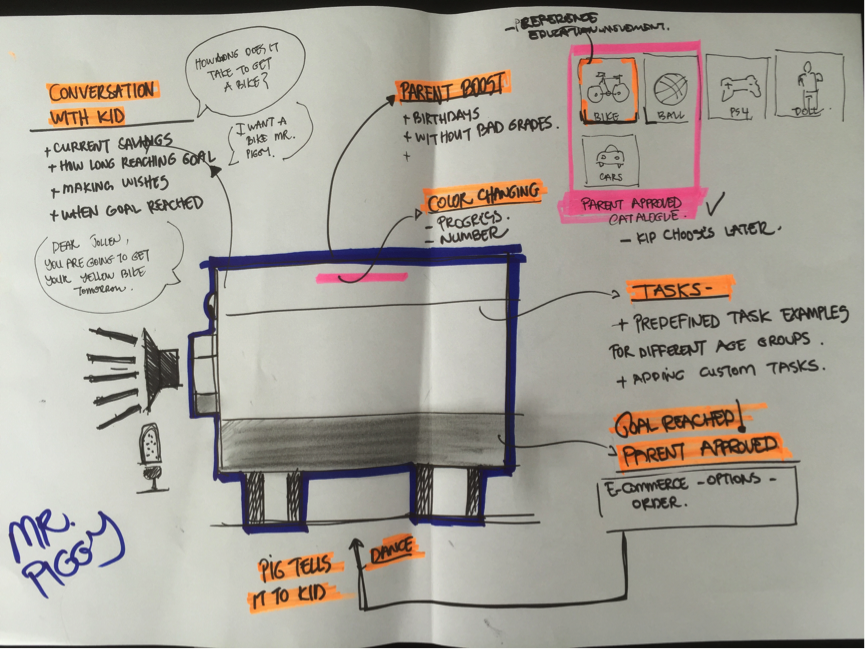 - PREFERENCE
EDUCATION INVOLVEMENT.
HOW LONG DOES IT
TAKE TO GET
A BIKE?
CONVERSATION
WITH KID
+ CURRENT SAVINGS
+ HOW LONG REACHING GOAL
+ MAKING WISHES
+ WHEN GOAL REACHED
I WANT A
BIKE MR.
PIGGY.
DEAR JOLLEN,
YOU ARE GOING TO GET
YOUR YELLOW BIKE
TOMORROW.
PARENT BOOST
+ BIRTHDAYS
+ WITHOUT BAD GRADES.
+
COLOR CHANGING
- PROGRESS.
- NUMBER
BIKE
BALL
PS4
DOLL
CARS
PARENT APPROVED
CATALOGUE.
- KID CHOOSES LATER.
TASKS -
+ PREDEFINED TASK EXAMPLES
FOR DIFFERENT AGE GROUPS.
+ ADDING CUSTOM TASKS.
GOAL REACHED
PARENT APPROVED
E-COMMERCE - OPTIONS -
ORDER.
MR.
PIGGY
PIG TELLS
IT TO KID
DANCE